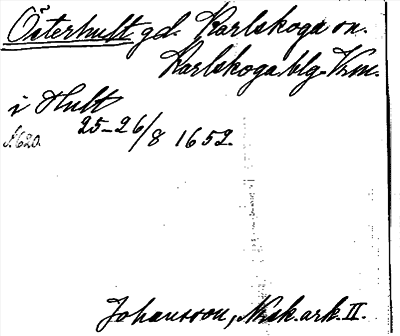 Österhult gd. Karlskoga sn.
Karlskoga blg. Vrm.
i Hult
25-26/8 1652.
s. 620.
Johansson, Nsk. ark. II.